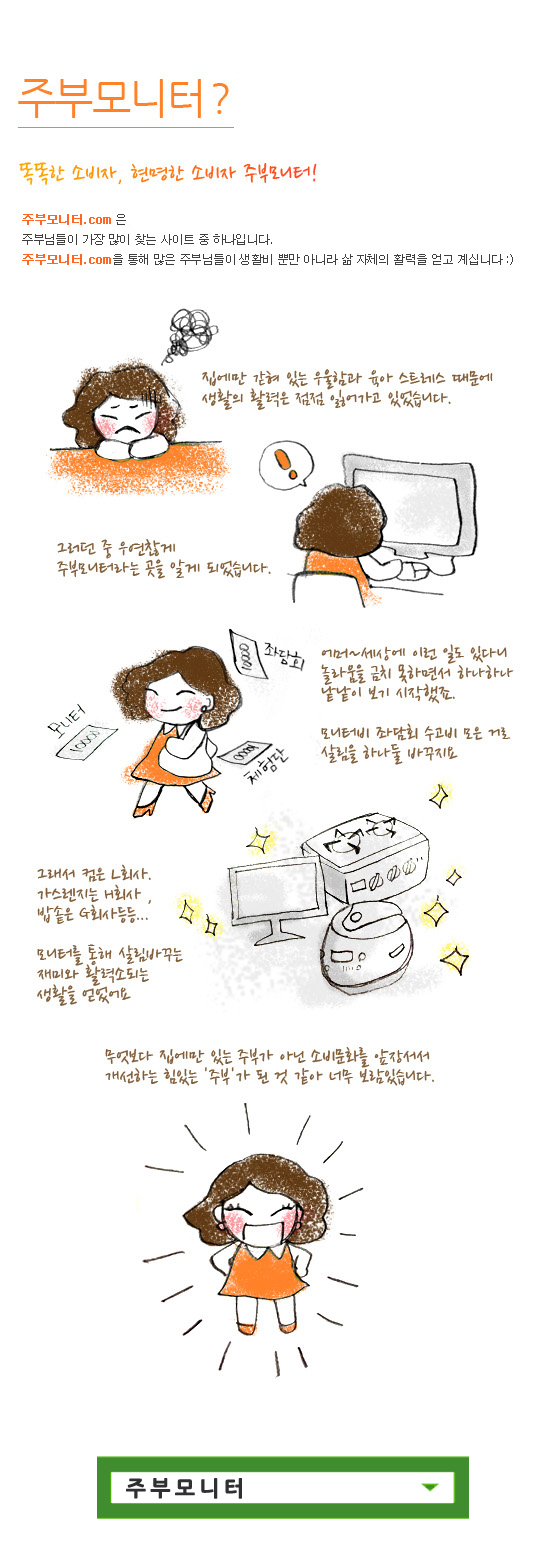 주부모니터?
똑똑한 소비자, 현명한 소비자 주부모니터!
주부모니터.com 은
주부님들이 가장 많이 찾는 사이트 중 하나입니다.
주부모니터.com을 통해 많은 주부님들이 생활비 뿐만 아니라 삶 자체의 활력을 얻고 계십니다 :)
집에만 갇혀 있는 우울함과 육아 스트레스 때문에
생활의 활력은 점점 잃어가고 있었습니다.
그러던 중 우연찮게
주부모니터라는 곳을 알게 되었습니다.
좌담회
모니터
체험단
어머~세상에 이런 일도 있다니
놀라움을 금치 못하면서 하나하나
낱낱이 보기 시작했죠.
모니터비 좌담회 수고비 모은 거로
살림을 하나둘 바꾸지요
그래서 컴은 L회사.
가스렌지는 H회사 ,
밥솥은 G회사등등...
모니터를 통해 살림바꾸는
재미와 활력소되는
생활을 얻었어요
무엇보다 집에만 있는 주부가 아닌 소비문화를 앞장서서
개선하는 힘있는 '주부'가 된 것 같아 너무 보람있습니다.
주부모니터